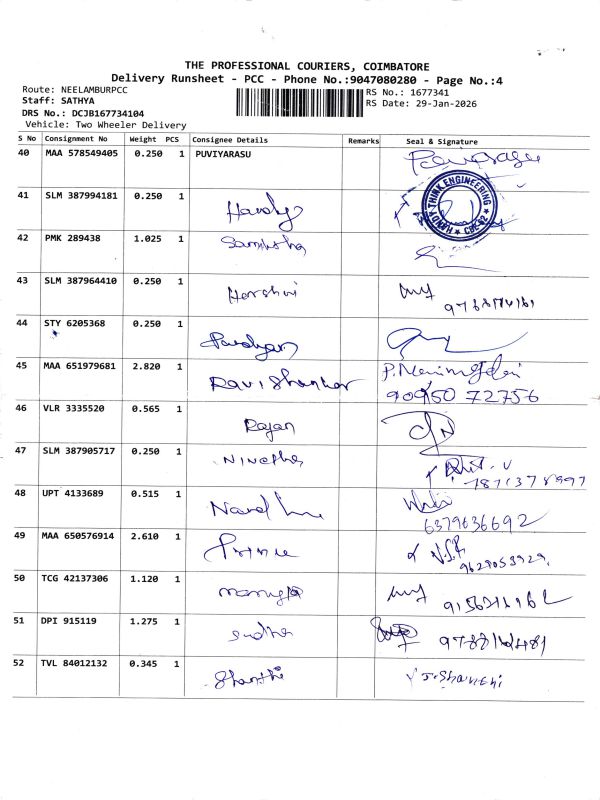 THE PROFESSIONAL COURIERS, COIMBATORE
Delivery Runsheet - PCC - Phone No.:9047080280 - Page No.:4
Route: NEELAMBURPCC
RS No.: 1677341
Staff: SATHYA
RS Date: 29-Jan-2026
DRS No.: DCJB167734104
Vehicle: Two Wheeler Delivery
S No Consignment No Weight PCS Consignee Details Remarks Seal & Signature
40 MAA 578549405 0.250 1 PUVIYARASU
41 SLM 387994181 0.250 1 Handy
HANDY THINK ENGINEERING ★ CBE-62 ★
42 PMK 289438 1.025 1
43 SLM 387964410 0.250 1 Harshni
44 STY 6205368 0.250 1
45 MAA 651979681 2.820 1 Ravi Shankar
90950 72756
46 VLR 3335520 0.565 1 Rajan
47 SLM 387905717 0.250 1 Nivetha
48 UPT 4133689 0.515 1
6379636692
49 MAA 650576914 2.610 1 Prince
N.S.R
9629053929
50 TCG 42137306 1.120 1
51 DPI 915119 1.275 1 sudha
52 TVL 84012132 0.345 1 Shanthi